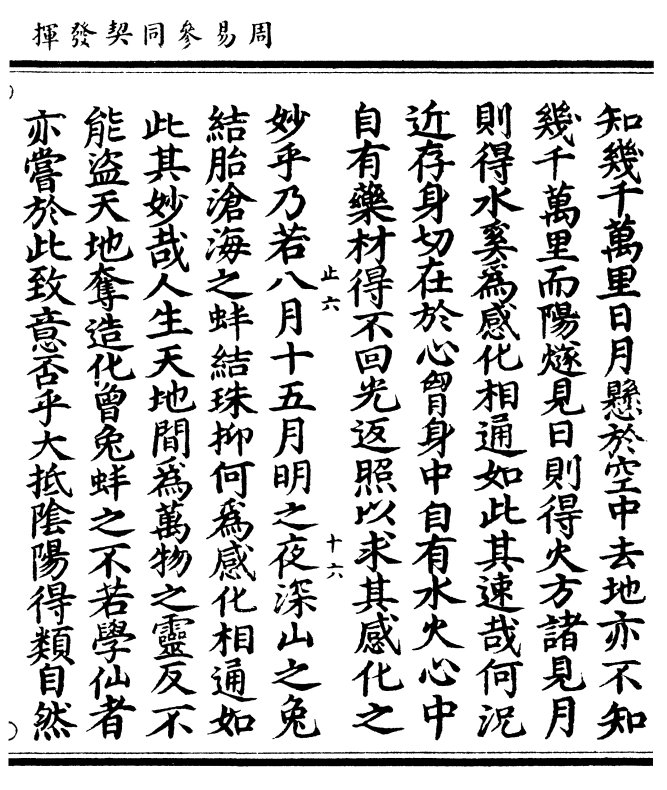 周易參同契發揮
知幾千萬里日月懸於空中去地亦不知
幾千萬里而陽燧見日則得火方諸見月
則得水奚為感化相通如此其速哉何況
近存身切在於心胷身中自有水火心中
自有藥材得不回光返照以求其感化之
止六
十六
妙乎乃若八月十五月明之夜深山之兔
結胎滄海之蚌結珠抑何為感化相通如
此其妙哉人生天地間為萬物之靈反不
能盜天地奪造化曾兔蚌之不若學仙者
亦嘗於此致意否乎大抵陰陽得類自然